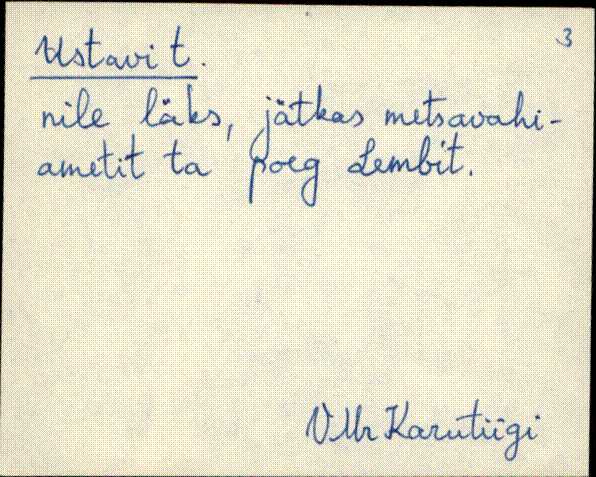 3
Ustavi t.
nile läks, jätkas metsavahi-
ametit ta poeg Lembit.
VMr Karutiigi